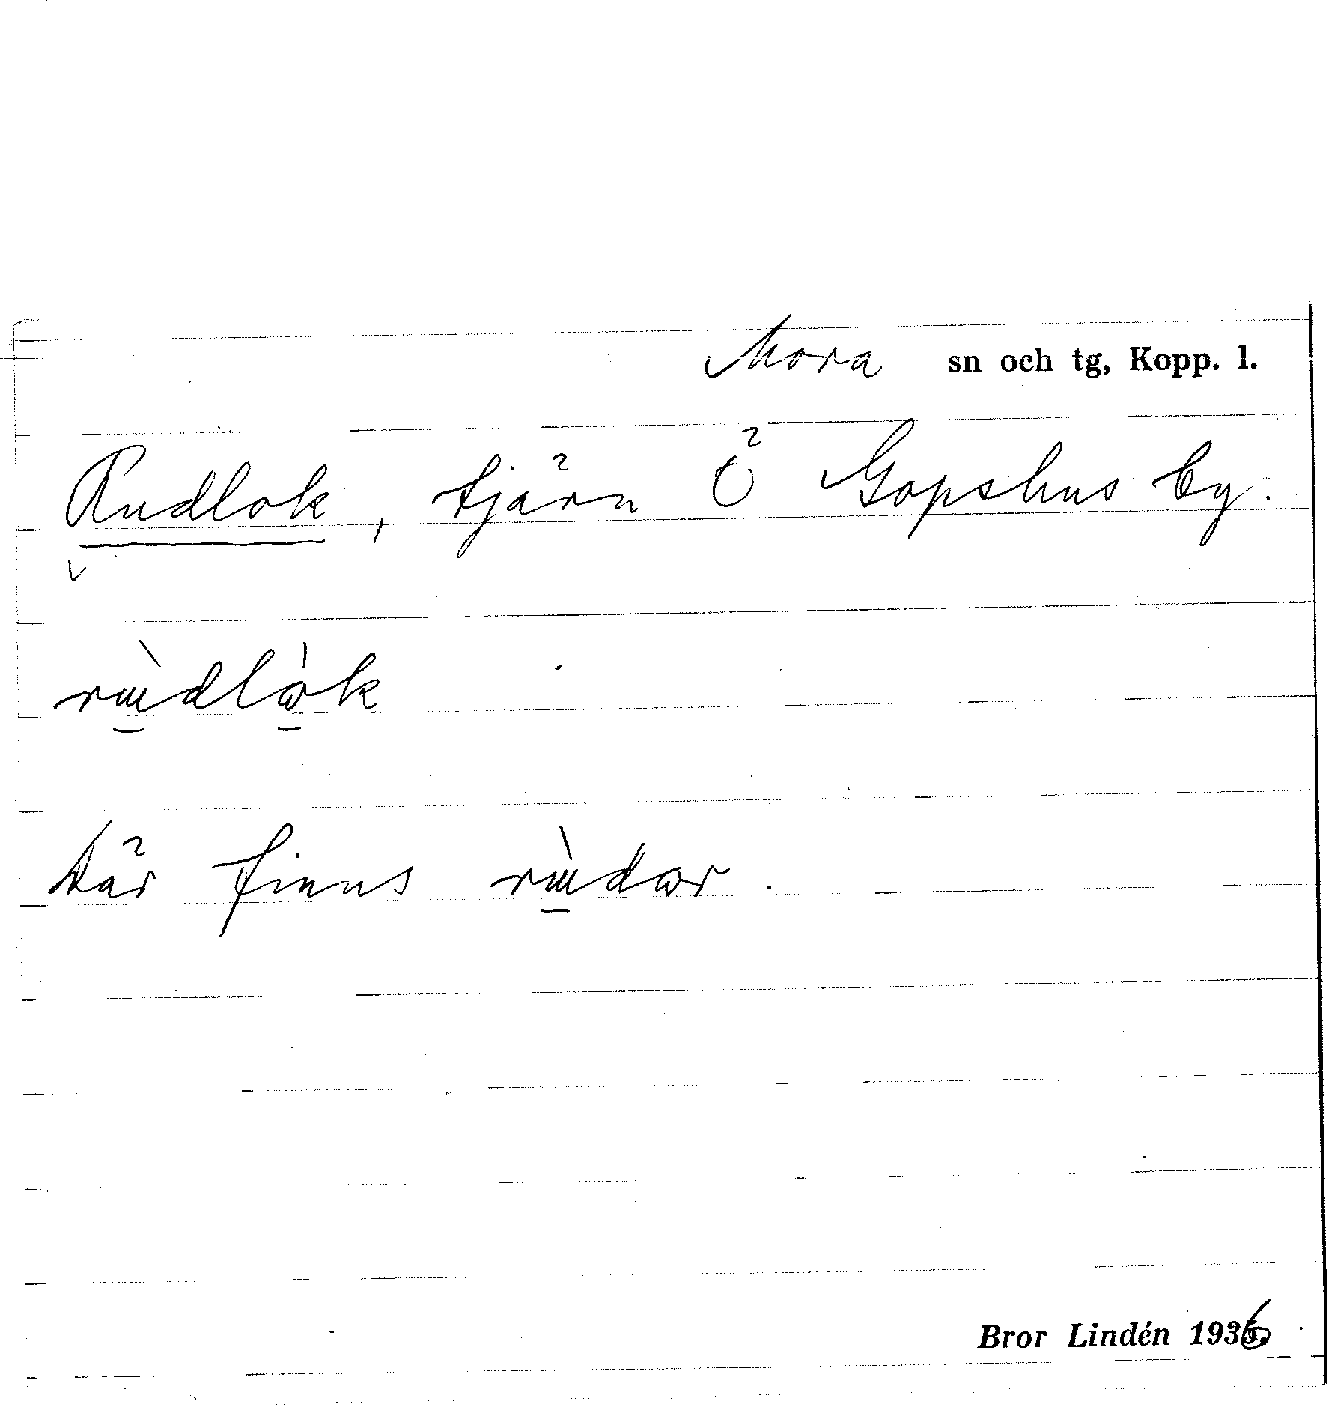 Mora sn och tg, Kopp. l.
Rudlok, tjärn Ö Gopshus by.
Där finns
Bror Lindén 1936.